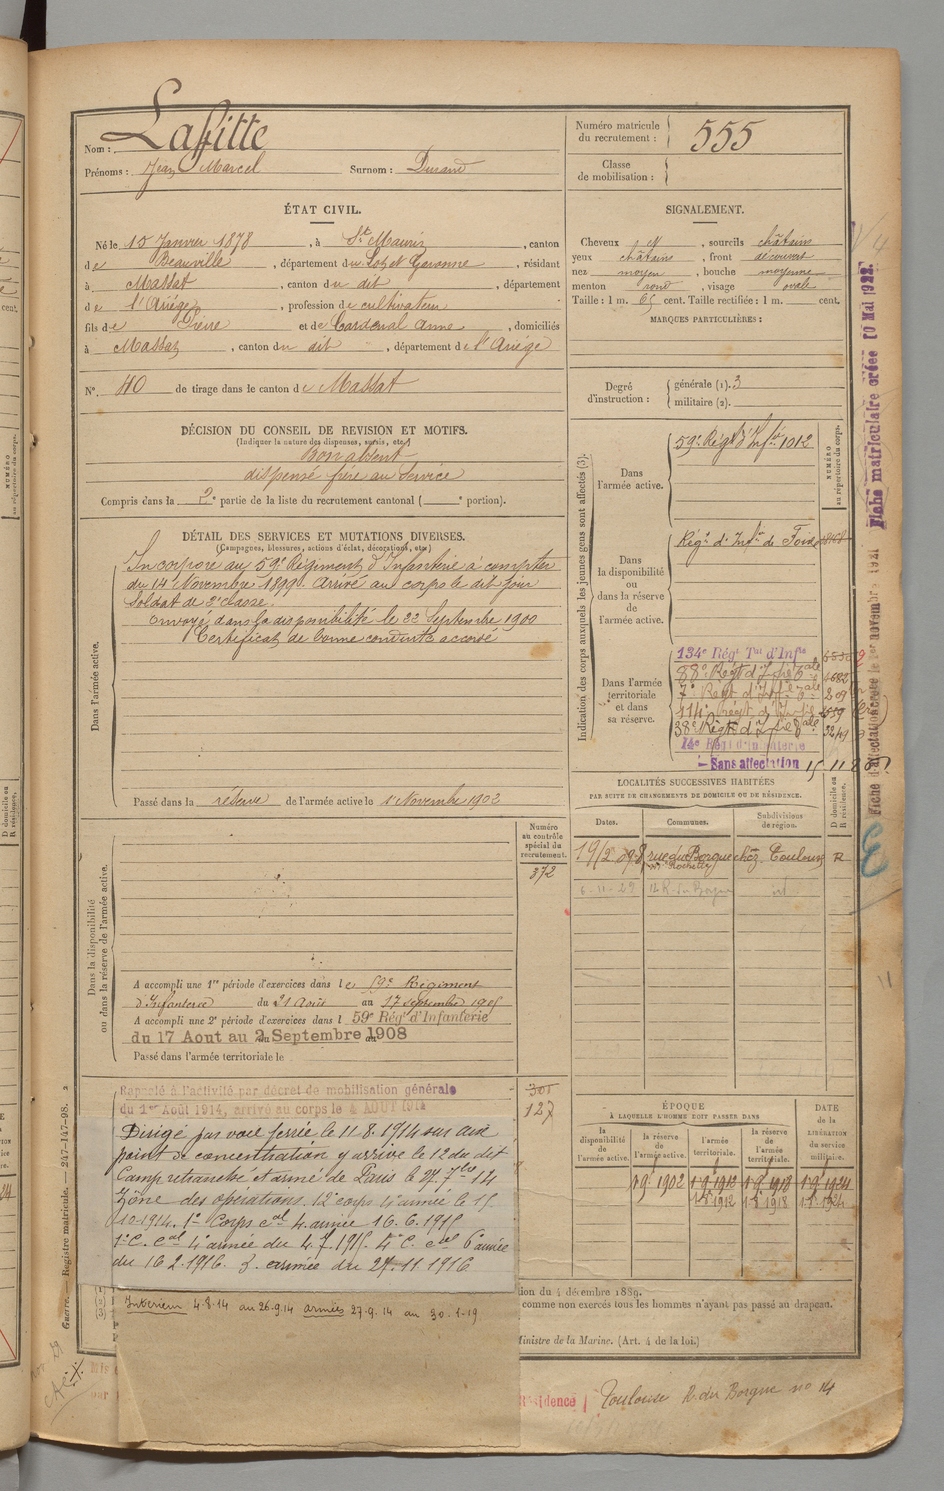 Nom : Lafitte
Prénoms : Jean Marcel Surnom : Durand
Numéro matricule du recrutement : 555
Classe de mobilisation :
ÉTAT CIVIL.
Né le 15 Janvier 1878, à St Maurin, canton
de Beauville, département du Lot et Garonne, résidant
à Massat, canton du dit, département
de l'Ariège, profession de cultivateur
fils de Pierre et de Cardenal Anne, domiciliés
à Massat, canton du dit, département de l'Ariège
N° 40 de tirage dans le canton de Massat
SIGNALEMENT.
Cheveux, sourcils châtains
yeux châtains, front découvert
nez moyen, bouche moyenne
menton rond, visage ovale
Taille : 1 m. 65 cent. Taille rectifiée : 1 m. cent.
MARQUES PARTICULIÈRES :
Degré d'instruction : générale (1). 3
militaire (2).
DÉCISION DU CONSEIL DE REVISION ET MOTIFS.
(Indiquer la nature des dispenses, sursis, etc.)
Bon absent
dispensé frère au service
Compris dans la 2e partie de la liste du recrutement cantonal ( e portion).
DÉTAIL DES SERVICES ET MUTATIONS DIVERSES.
(Campagnes, blessures, actions d'éclat, décorations, etc.)
Dans l'armée active.
Incorporé au 59e Régiment d'Infanterie à compter
du 14 Novembre 1899. Arrivé au corps le dit jour
Soldat de 2e classe.
Envoyé dans la disponibilité le 22 Septembre 1900
Certificat de bonne conduite accordé
Passé dans la réserve de l'armée active le 1er Novembre 1902
Indication des corps auxquels les jeunes gens sont affectés (3).
NUMÉRO au répertoire du corps.
Dans l'armée active.
59e Régt d'Infie 1012
Dans la disponibilité ou dans la réserve de l'armée active.
Régt d'Infie de Foix
Dans l'armée territoriale et dans sa réserve.
134e Régt Tal d'Infie
88e Régt d'Infie
7e Régt d'Infie 209
114e Régt d'Infie
38e Régt d'Infie 3249
14e Régt d'Infanterie
Sans affectation
Fiche matriculaire créée 10 Mai 1922.
LOCALITÉS SUCCESSIVES HABITÉES
PAR SUITE DE CHANGEMENTS DE DOMICILE OU DE RÉSIDENCE.
Dates. Communes. Subdivisions de région. D domicile ou R résidence.
rue du Borgne chez Toulouse R
6-11-27 12 R. du Borgne id
Numéro au contrôle spécial du recrutement.
372
Dans la disponibilité ou dans la réserve de l'armée active.
A accompli une 1re période d'exercices dans le 59e Régiment
d'Infanterie du 21 Août au 17 septembre 1905
A accompli une 2e période d'exercices dans l 59e Rég' d'Infanterie
du 17 Aout au 2 Septembre 1908
Passé dans l'armée territoriale le
Rappelé à l'activité par décret de mobilisation générale
du 1er Août 1914, arrivé au corps le 4 AOUT 1914
301
127
Dirigé par voie ferrée le 11 8. 1914 sur son
point de concentration y arrive le 12 du dit
Camp retranché et armé de Paris le 27. 7bre 14
Zône des opérations. 12e corps 4e armée le 15
10-1914. 1er Corps cal 4. armée 16. 6. 1915
1er C. cal 4e armée du 4. 7. 1915. 4e C. cal 6e armée
du 16 2. 1916. 3. armée du 27. 11 1916
Intérieur 4.8.14 au 26.9.14 armées 27.9.14 au 30.1.19
ÉPOQUE
À LAQUELLE L'HOMME DOIT PASSER DANS
la disponibilité de l'armée active. la réserve de l'armée active. l'armée territoriale. la réserve de l'armée territoriale.
DATE de la LIBÉRATION du service militaire.
1.9.1902 1.9.1912 1.9.1918 1.9.1924
1.8.1912 1.8.1918 1.8.1924
tion du 4 décembre 1889.
comme non exercés tous les hommes n'ayant pas passé au drapeau.
Ministre de la Marine. (Art. 4 de la loi.)
Guerre. — Registre matricule. — 247-147-98.
Résidence Toulouse R. du Borgne no 14